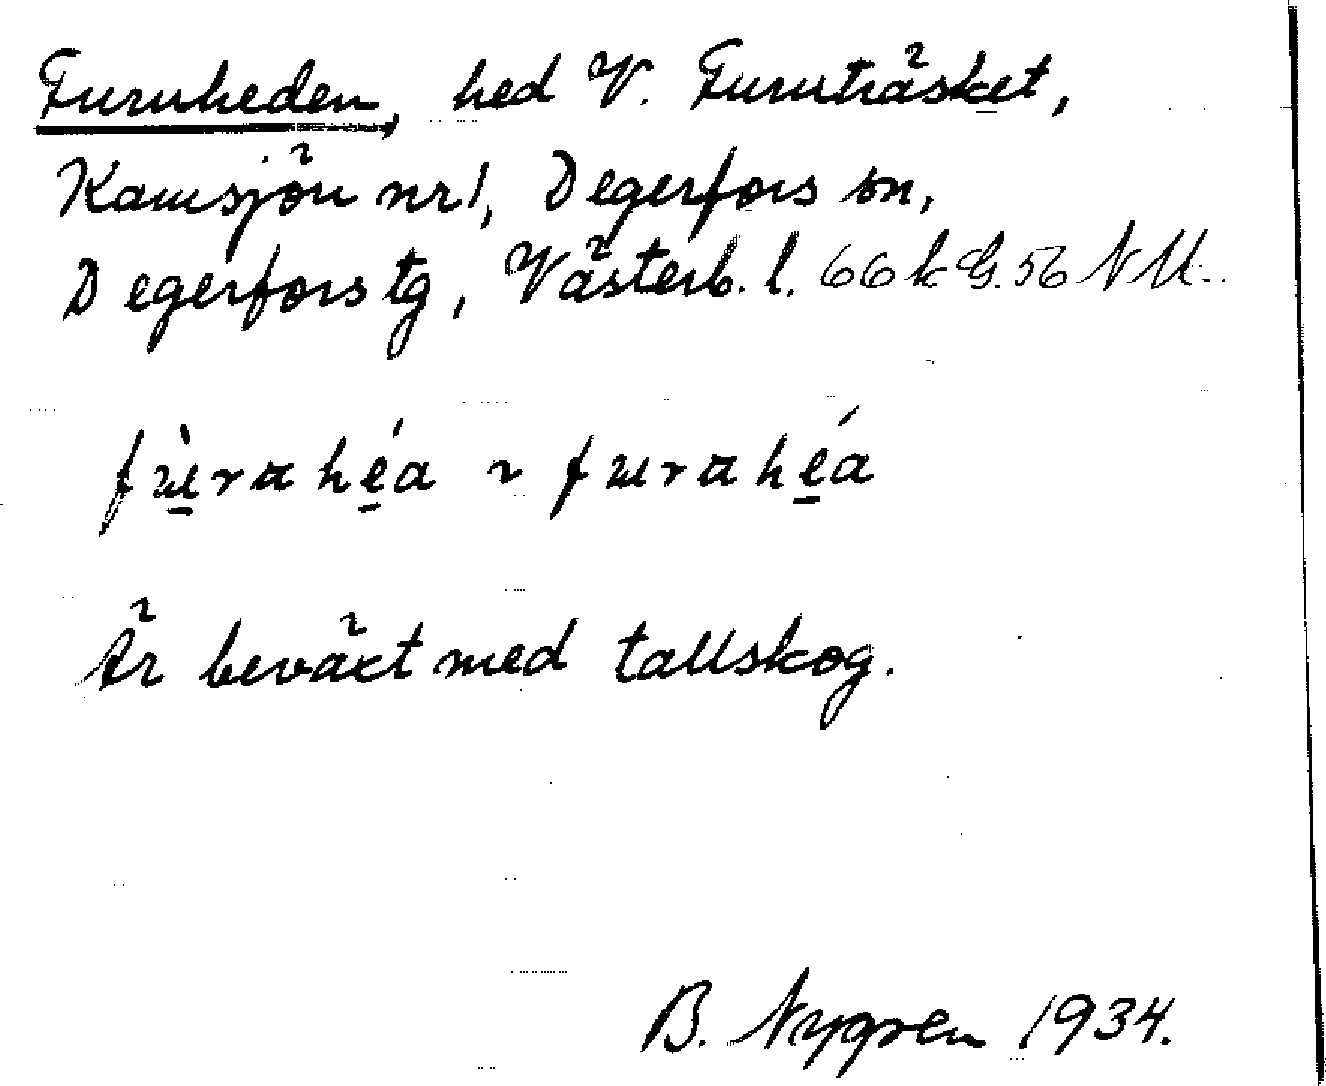 Furuheden, hed V. Furuträsket,
Kamsjön nr 1, Degerfors sn,
Degerfors tg, Västerb. l. 66 k G. 56 NU.
fu̱̇̀rahé̱a ~ furahé̱a
Är beväxt med tallskog.
B. Nygren 1934.